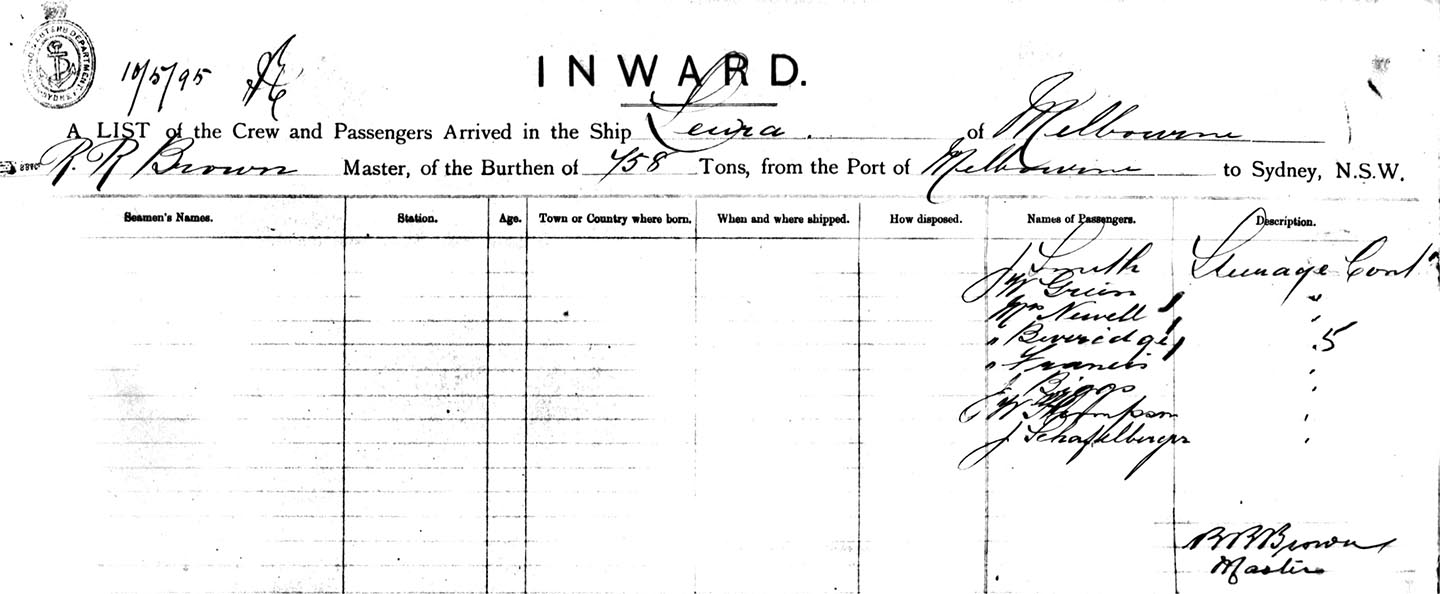 10/5/95
INWARD.
A LIST of the Crew and Passengers Arrived in the Ship Leura. of Melbourne
R. R Brown Master, of the Burthen of 458 Tons, from the Port of Melbourne to Sydney, N.S.W.
Seamen's Names. Station. Age. Town or Country where born. When and where shipped. How disposed. Names of Passengers. Description.
J Smith Steerage Cont'
W Green "
Mrs Newell "
" Beveridge 5
" Francis "
J Biggs "
W Thompson "
J "
R R Brown
Master